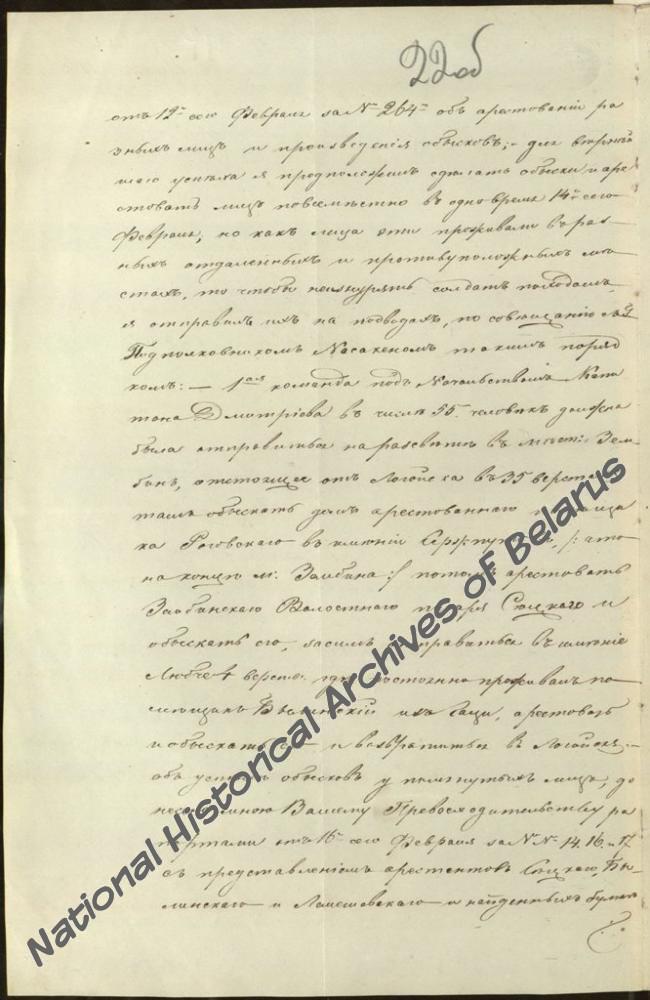 22об
отъ 12го сего Февраля за № 264м объ арестованіи ра
зныхъ лицъ и произведенія обысковъ; для вѣрнѣй
шаго успѣха я предположилъ сдѣлать обыски и аре
стовать лицъ повсемѣстно въ одно время 14го сего
Февраля, но какъ лица эти проживали въ раз
ныхъ отдаленныхъ и противуположныхъ мѣ
стахъ, то чтобы неизнурять солдатъ походомъ,
я отправилъ ихъ на подводахъ, по совѣщанію съ
Подполковникомъ Насакеномъ такимъ поряд
комъ: — 1ая команда подъ Начальствомъ Капи
тана Дмитріева въ числѣ 55 человѣкъ должна
была отправиться на разсвѣтѣ въ мѣст: Зем
бинъ, отстоящее отъ Логойска въ 35 верстахъ
тамъ обыскать домъ арестованнаго
ка Роговскаго въ имѣніи /: это
на концѣ м: Зембина :/ потомъ арестовать
Зембинскаго Волостнаго писаря Сюцкаго и
обыскать его, засимъ отправиться въ имѣніе
4 верст: гдѣ постоянно проживалъ по
мѣщикъ Былинскій, арестовать
и обыскать его и возвратиться въ Логойскъ. —
объ успѣхѣ обысковъ у помянутыхъ лицъ, до
несено мною Вашему Превосходительству ра
портами отъ 16го сего Февраля за №№ 14, 16 и 17
съ представленіемъ арестантовъ Сюцкаго, Бы
линскаго и и найденныхъ бумагъ
National Historical Archives of Belarus